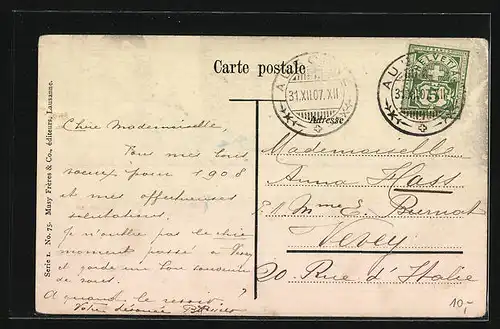 Carte postale
AU
31.XII.07.XII
HELVETIA
5
31.XII.07
Adresse.
Serie 1. No. 75. Musy Frères & Co., éditeurs, Lausanne.
Chère Mademoiselle
Tous mes bons
voeux pour 1908
et mes affectueuses
salutations.
Je n'oublie pas le
moment passé à Vevey
et garde une bon souvenir
de vous.
A quand le revoir ?
Votre dévouée
Mademoiselle
Anna Hass
Mme E. Burnat
Vevey
20 Rue d'Italie
10,-